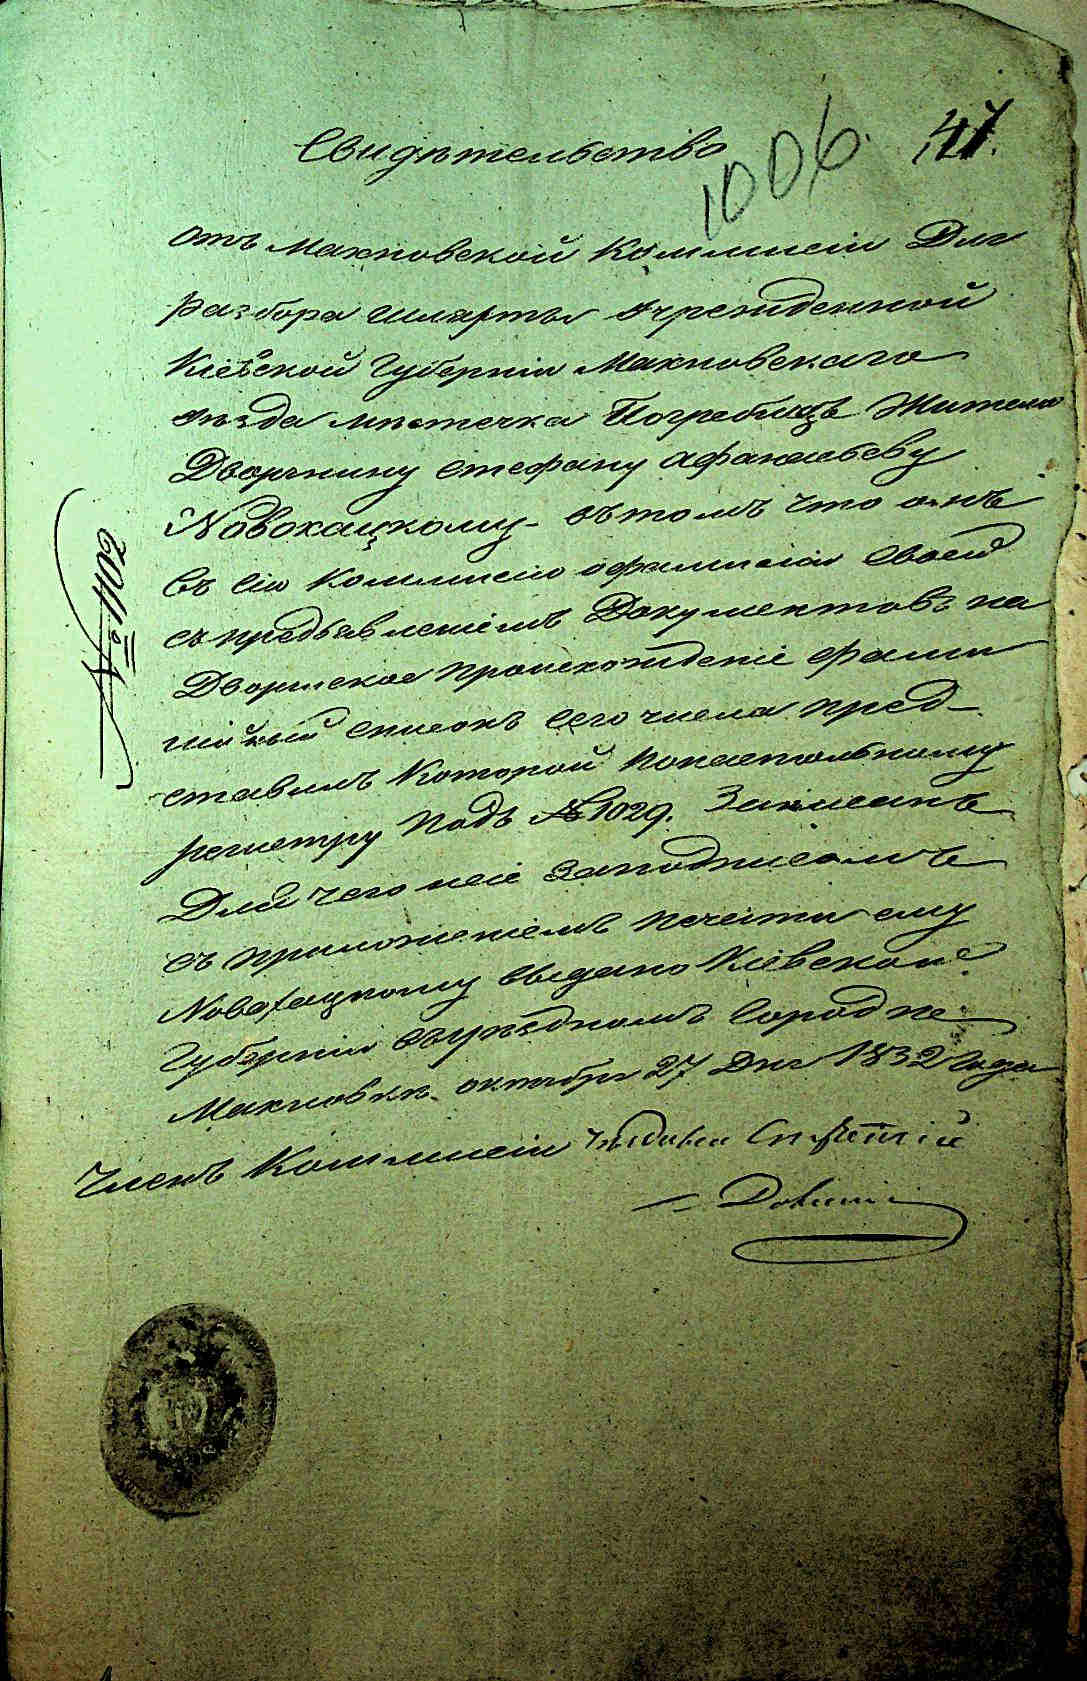 Свидѣтельство
1006.
41.
отъ Махновской Коммисіи Для
разбора шляхты Учрежденной
Кіевской Губерніи Махновскаго
уѣзда мѣстечка Погребищъ Жителю
Дворянину Стефану Афанасьеву
Новохацкому - въ томъ что онъ
въ сію Коммисію о фамиліи Своей
съ предъявленіемъ Документовъ на
Дворянское происхожденіе фами
лійный списокъ сего числа пред-
ставилъ Которой по настольному
регистру подъ № 1029. Записанъ
Для чего сіе за подписомъ
съ приложеніемъ печати ему
Новохацкому выдано Кіевской
Губерніи въ уѣздномъ Городѣ
Махновкѣ октября 27 Дня 1832 Года
Членъ Коммисіи
№ 1102